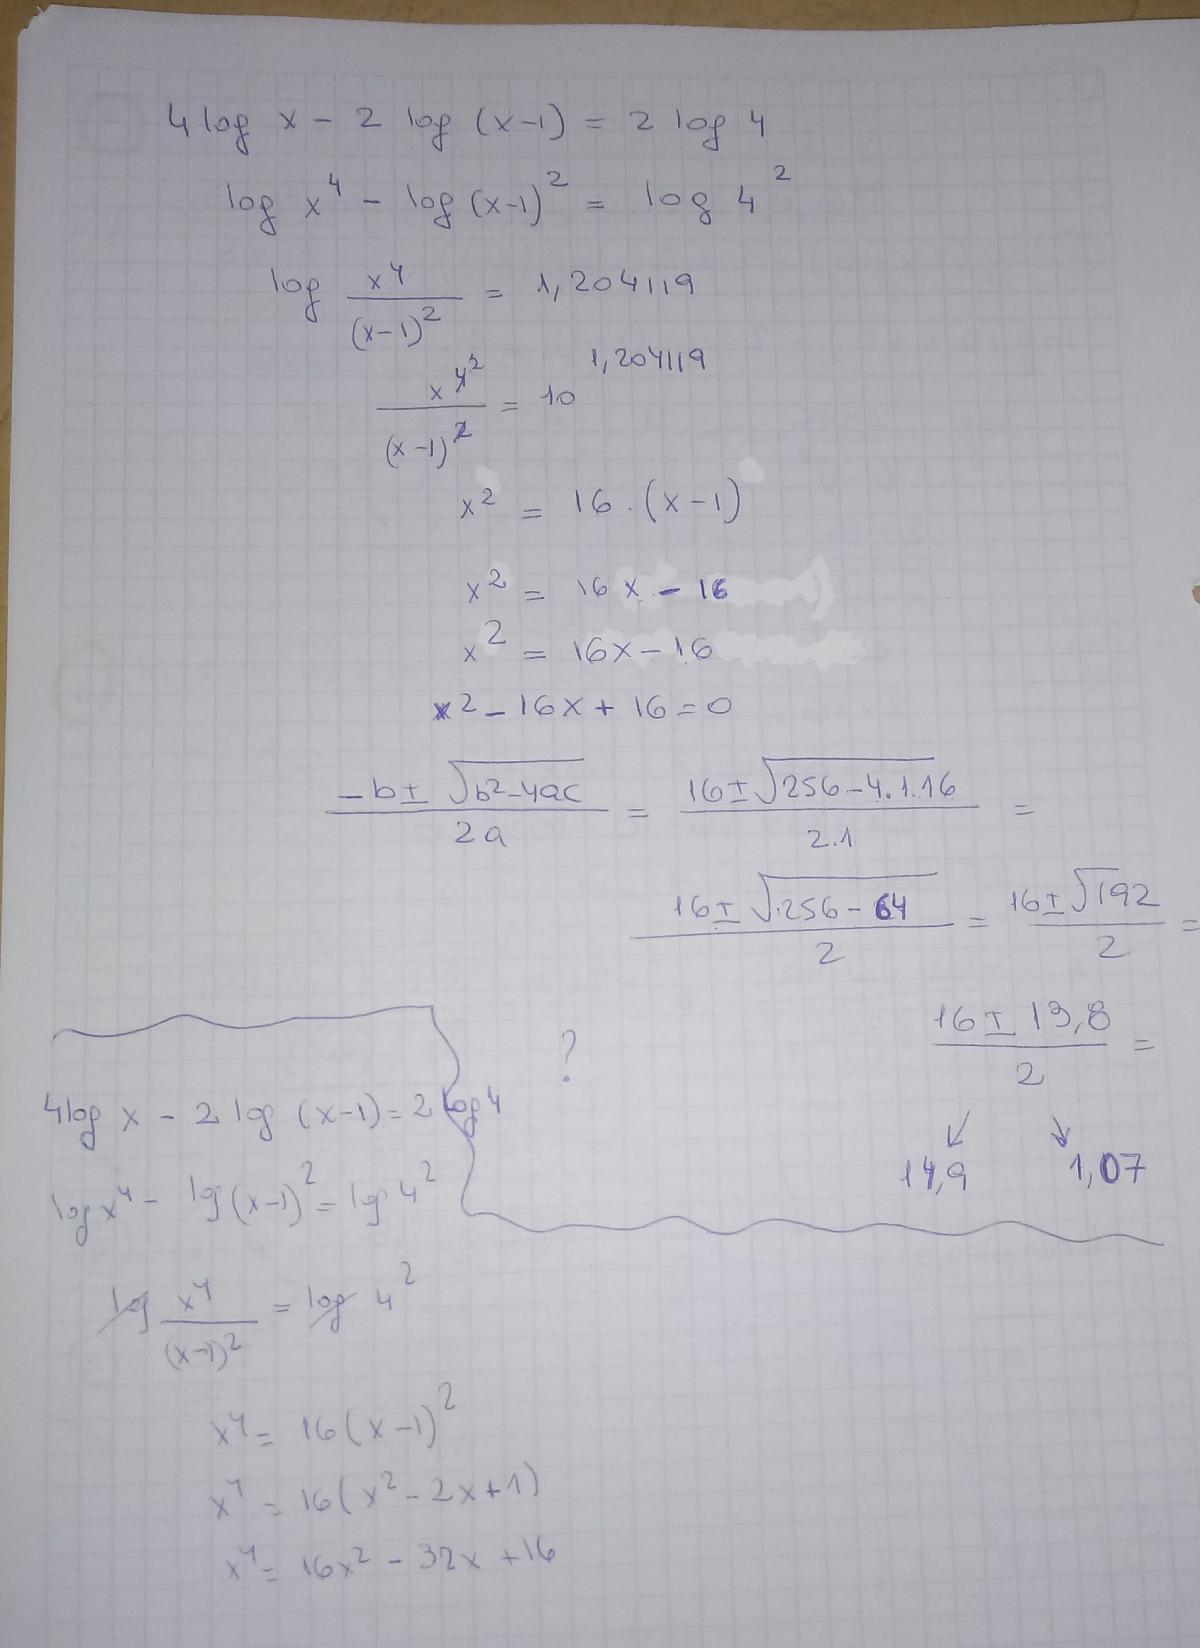 4 log x - 2 log (x-1) = 2 log 4
log x^4 - log (x-1)^2 = log 4^2
log x^4/(x-1)^2 = 1,204119
x^4^2/(x-1)^2 = 10^1,204119
x^2 = 16 . (x-1)
x^2 = 16x - 16
x^2 = 16x - 16
x^2 - 16x + 16 = 0
(-b ± √(b^2-4ac))/2a = (16 ± √(256-4.1.16))/2.1 =
(16 ± √(256-64))/2 = (16 ± √192)/2 =
(16 ± 13,8)/2 =
14,9 1,07
?
4 log x - 2 log (x-1) = 2 log 4
log x^4 - log (x-1)^2 = log 4^2
log x^4/(x-1)^2 = log 4^2
x^4 = 16 (x-1)^2
x^4 = 16 (x^2 - 2x + 1)
x^4 = 16x^2 - 32x + 16